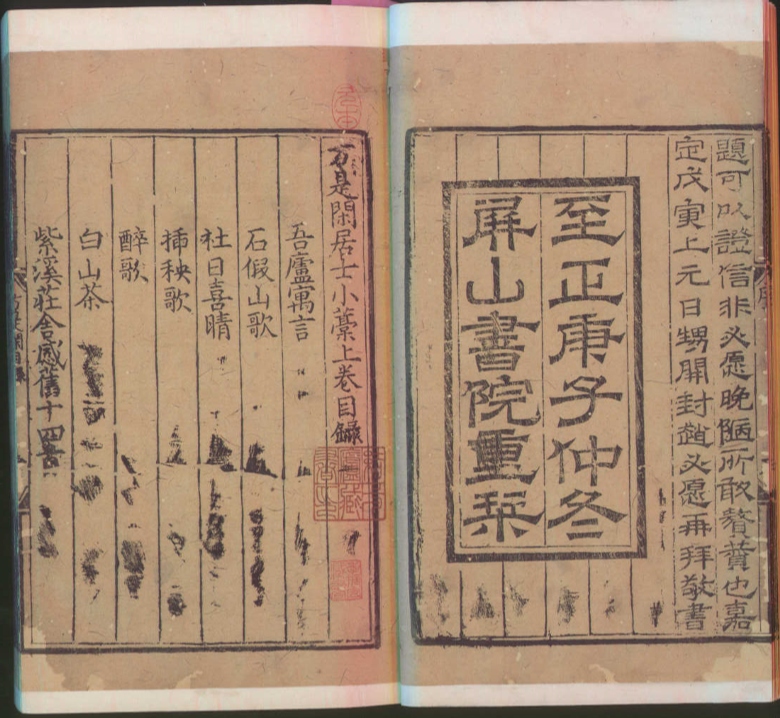 題可以證信非必愿晚陋所敢贅贊也嘉
定戊寅上元日甥開封趙必愿再拜敬書
至正庚子仲冬
屏山書院重栞
方是閑居士小藁上卷目錄
吾廬寓言
石假山歌
社日喜晴
插秧歌
醉歌
白山茶
紫溪莊舍感舊十四首